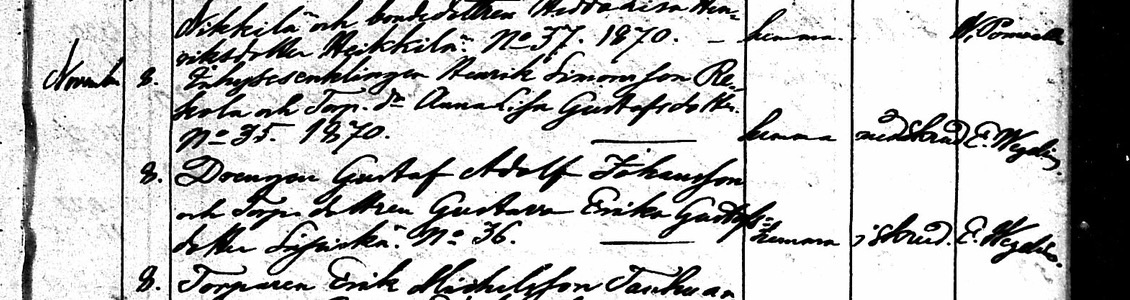 Nikkilä och bondedottren Hedda Lisa Hen-
riksdotter Heikkilä. No 37. 1870. — hemma.
Novemb. 8. Enkesenklingen Henrik Simonsson Re-
kola och Torp. dr Anna Lisa Gustafsdotter.
No 35. 1870. hemma E. Wegelius.
8. Drengen Gustaf Adolf Johansson
och Torp. dottren Gustava Erika Gustafs-
dotter No 36. hemma i skrud. E. Wegelius.
8. Torparen Erik Michelsson